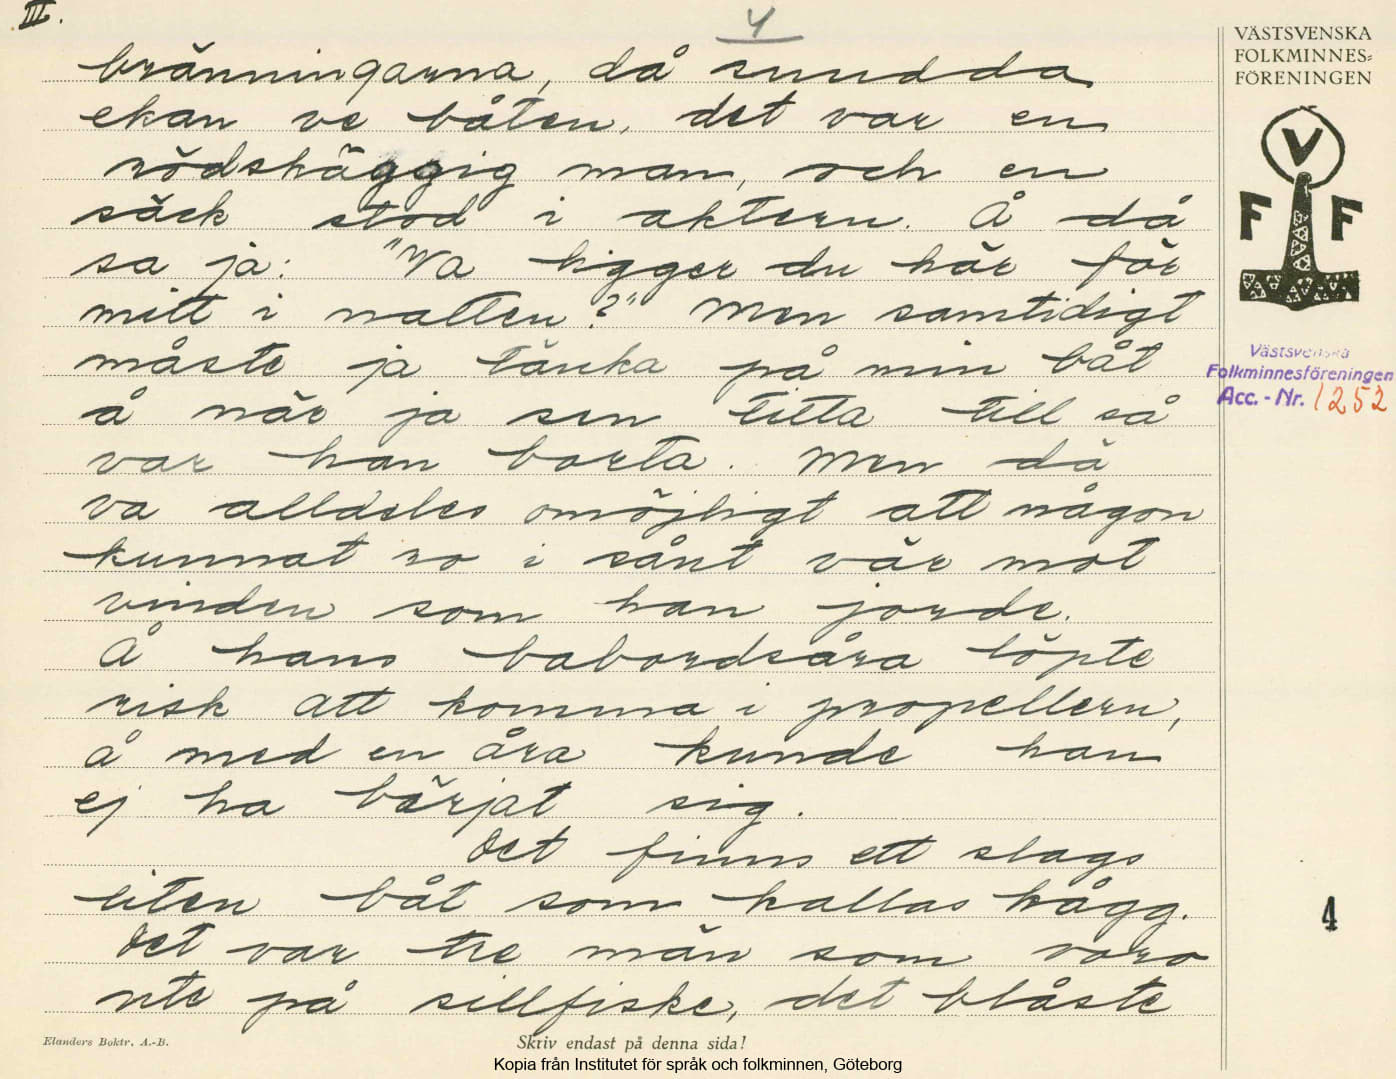 III.
4
bränningarna, då snudda
ekan ve båten, det var en
rödskäggig man, och en
säck stod i aktern. Å då
sa ja: "Va ligger du här för
mitt i natten?" Men samtidigt
måste ja tänka på min båt
å när ja sen titta till så
var han borta. Men då
va alldeles omöjligt att någon
kunnat ro i sånt vär mot
vinden som han jorde.
Å hans babordsåra löpte
risk att komma i propellern,
å med en åra kunde han
ej ha bärjat sig.
Det finns ett slags
liten båt som kallas kågg.
Det var tre män som voro
ute på sillfiske, det blåste
VÄSTSVENSKA
FOLKMINNES=
FÖRENINGEN
V
F F
Västsvenska
Folkminnesföreningen
Acc. - Nr. 1252
4
Elanders Boktr. A.-B.
Skriv endast på denna sida!
Kopia från Institutet för språk och folkminnen, Göteborg